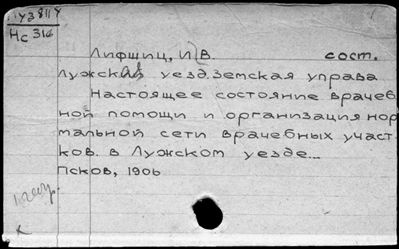 У3 811У
Нс 316
Лифшиц, И.В. сост.
Лужская уезд. земская управа
Настоящее состояние врачеб
ной помощи и организация нор
мальной сети врачебных участ-
ков в Лужском уезде...
Псков, 1906